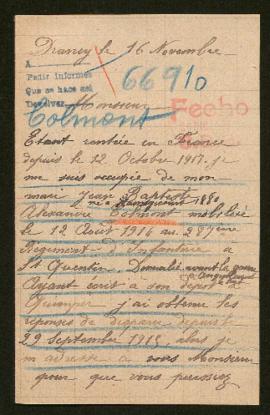 Drancy le 16 Novembre
A
Pedir informes
Que se hace así
Devolver
66910
Monsieur
Fecho
Colmont
Etant rentrée en France
depuis le 12 Octobre 1917 je
me suis occupée de mon
mari Jean Baptiste
né a 1880
Alexandre Colmont mobilisé
le 12 Août 1914 au 287ème
Régiment d'Infanterie a
St Quentin. Domicilié avant la guerre
Ayant ecrit a son depot a
Quimper j'ai obtenue les
réponses de disparu depuis
29 septembre 1915 alors je
m adresse a vous Monsieur
pour que vous puissiez